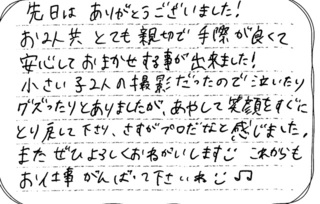 先日は ありがとうございました!
お2人共 とても 親切で 手際が 良くて
安心して おまかせする事が 出来ました!
小さい子2人の撮影だったので 泣いたり
グズったりとありましたが、あやして 笑顔をすぐに
とり戻して下さり、さすがプロだなと感じました。
また ぜひよろしくおねがいします☺ これからも
お仕事 がんばって下さいね☺♫